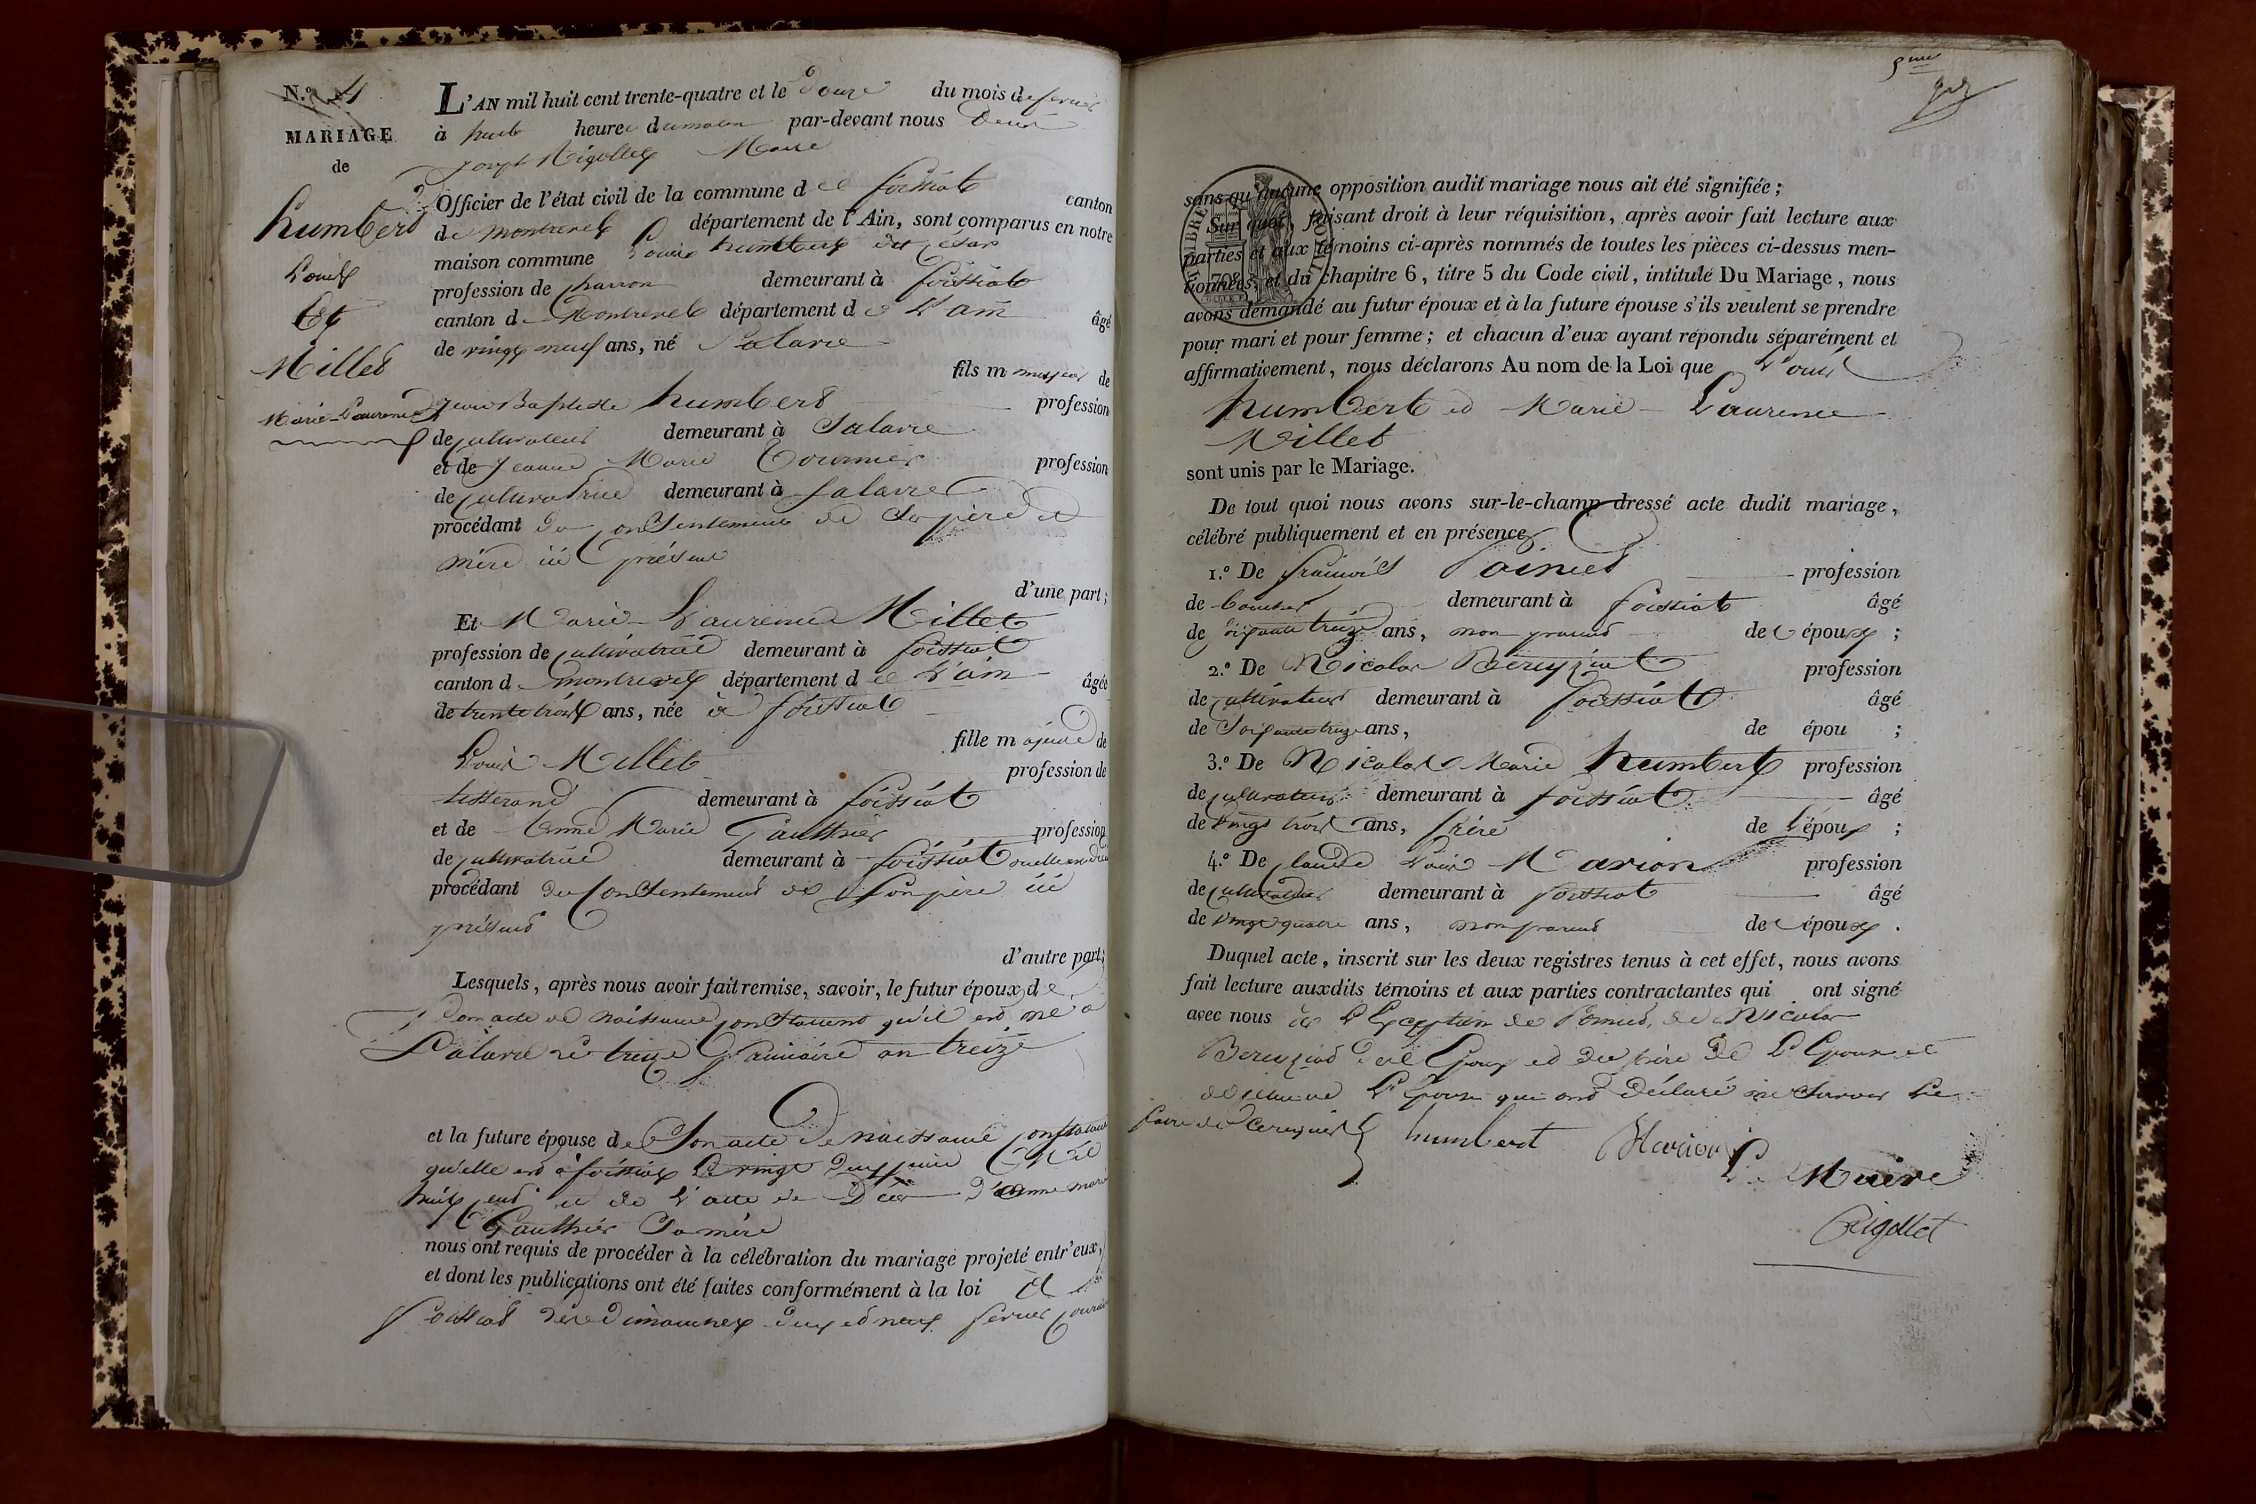 N.º 4
MARIAGE
de
humbert
Louis
Et
Millet
Marie Laurence
L'AN mil huit cent trente-quatre et le douze du mois de fevrier
à huit heures du matin par-devant nous
Joseph Rigollet Maire
Officier de l'état civil de la commune de foissiat canton
de montrevel département de l'Ain, sont comparus en notre
maison commune Louis humbert dit César
profession de charron demeurant à foissiat
canton de Montrevel département de L'ain âgé
de vingt neuf ans, né Salavre
fils majeur de
Jean Baptiste humbert profession
de cultivateur demeurant à Salavre
et de Jeanne Marie Tournier profession
de cultivatrice demeurant à Salavre
procédant du consentement de Ses père et
mère ici présens
d'une part;
Et Marie Laurence Millet
profession de cultivatrice demeurant à foissiat
canton de montrevel département de L'ain âgée
de trente trois ans, née à foissiat
fille majeure de
Louis Millet profession de
tisserand demeurant à foissiat
et de Anne Marie Gauthier profession
de cultivatrice demeurant à foissiat
procédant du Consentement de Son père ici
présent
d'autre part;
Lesquels, après nous avoir fait remise, savoir, le futur époux, de
Son acte de naissance constatant qu'il est né à
Salavre le treize Janvier an treize
et la future épouse de Son acte de naissance constatant
qu'elle est à foissiat Le vingt deux juin Mil
huit cent et de L'acte de Décès d'anne marie
Gauthier Sa mère
nous ont requis de procéder à la célébration du mariage projeté entr'eux,
et dont les publications ont été faites conformément à la loi à
foissiat les dimanches deux et neuf fevrier courant
5me
sans qu'aucune opposition audit mariage nous ait été signifiée;
Sur quoi, faisant droit à leur réquisition, après avoir fait lecture aux
parties et aux témoins ci-après nommés de toutes les pièces ci-dessus men-
tionnées, et du chapitre 6, titre 5 du Code civil, intitulé Du Mariage, nous
avons demandé au futur époux et à la future épouse s'ils veulent se prendre
pour mari et pour femme; et chacun d'eux ayant répondu séparément et
affirmativement, nous déclarons Au nom de la Loi que Louis
humbert et Marie Laurence
Millet
sont unis par le Mariage.
De tout quoi nous avons sur-le-champ dressé acte dudit mariage,
célébré publiquement et en présence
1.º De françois profession
de demeurant à foissiat âgé
de soixante treize ans, non parent de époux;
2.º De Nicolas Bereyziat profession
de cultivateur demeurant à foissiat âgé
de Soixante treize ans, de épou ;
3.º De Nicolas Marie humbert profession
de cultivateur demeurant à foissiat âgé
de vingt trois ans, frère de l'époux;
4.º De Claude Louis Marion profession
de cultivateur demeurant à foissiat âgé
de vingt quatre ans, non parent de époux.
Duquel acte, inscrit sur les deux registres tenus à cet effet, nous avons
fait lecture auxdits témoins et aux parties contractantes qui ont signé
avec nous à L'Exception de de Nicolas
Bereyziat de l'Epoux et du père de L'Epoux et
de L'Epouse qui ont Déclaré ne Savoir Le
faire de ce requis
humbert Marion
Le Maire
Rigollet